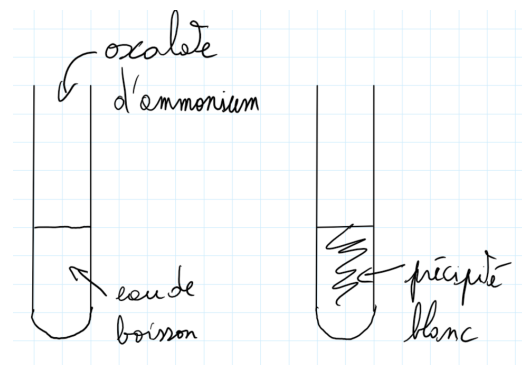 oxalate
d'ammonium
eau de
boisson
précipité
blanc